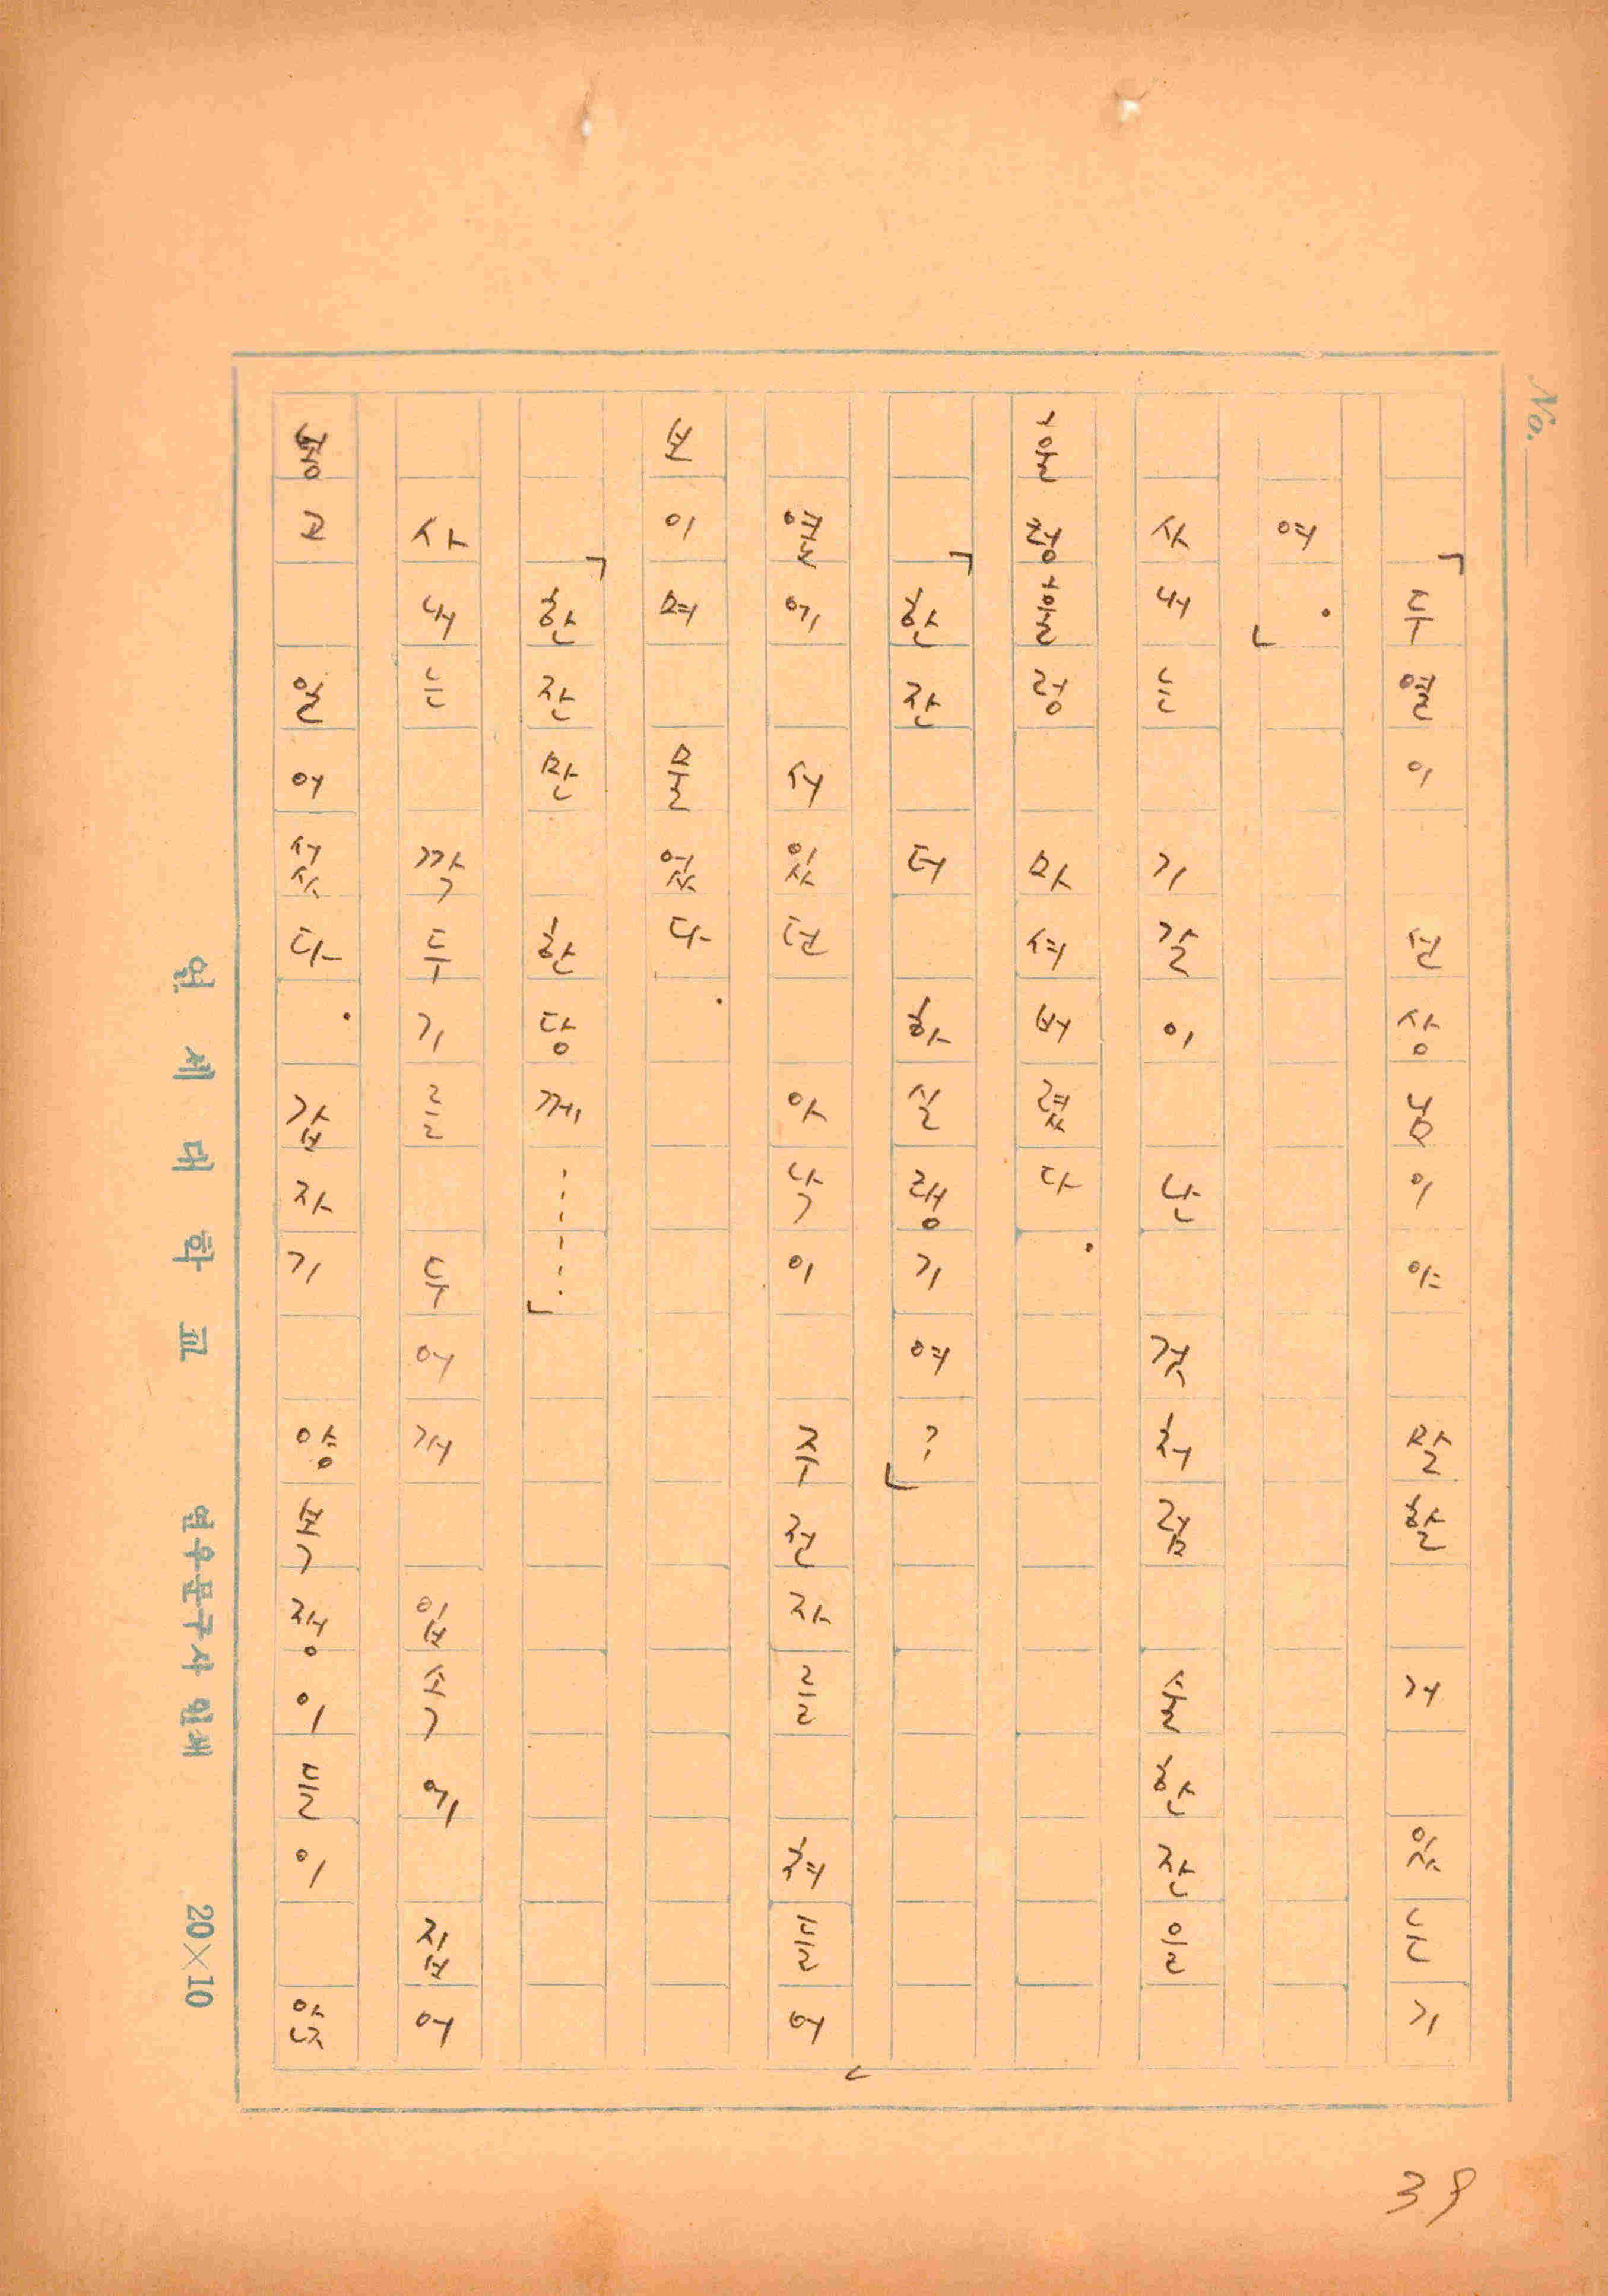 「두 이 선상님이야 말할 거 있는기
예.」
사내는 기갈이 난 것처럼 술 한잔을
훌렁훌렁 마셔버렸다.
「한잔 더 하실랭기예?」
옆에 서 있던 아낙이 주전자를 쳐들어
보이며 물었다.
「한잔만 한당께……」
사내는 깍두기를 두어개 입속에 집어
넣고 일어섰다. 갑자기 양복쟁이들이 앞
No.
연세대학교
연우문구사 인쇄
20×10
39